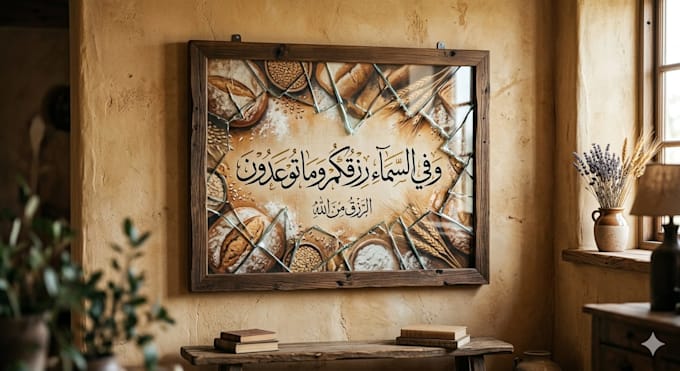 وَفِي السَّمَآءِ رِزْقُكُمْ وَمَا تُوعَدُونَ
الرِّزْقُ مِنَ اللهِ